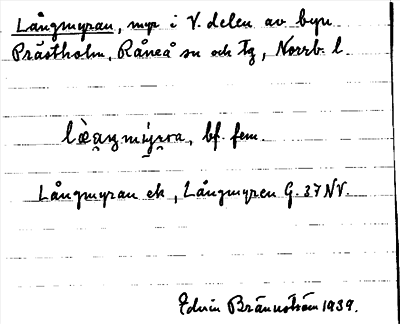 Långmyran, myr i V. delen av byn
Prästholm, Råneå sn och tg, Norrb. l.
bf. fem.
Långmyran ek, Långmyren G. 37 NV.
Edvin Brännström 1939.